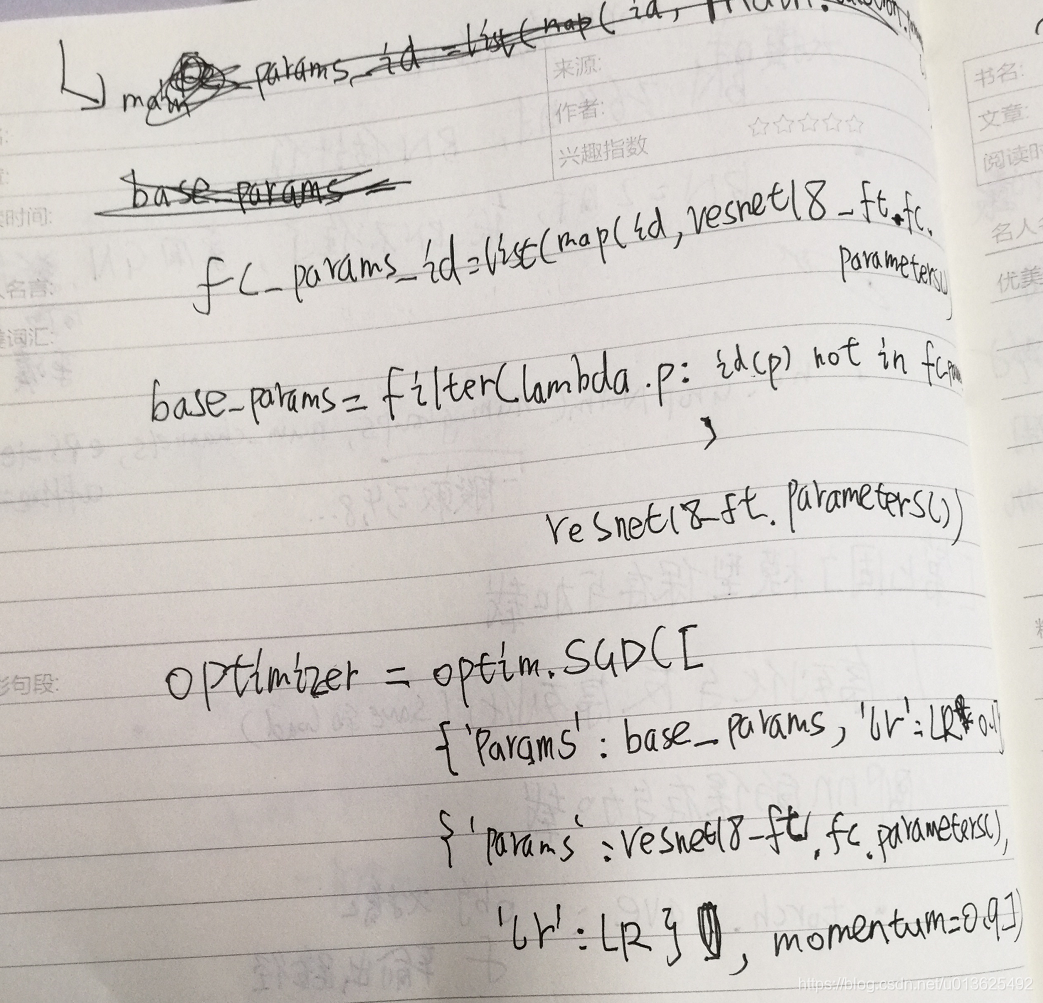 main params_id = list(map(id,
来源:
作者:
兴趣指数 ☆☆☆☆☆
书名:
文章:
base_params =
时间:
fc_params_id=list(map(id, resnet18_ft.fc.
parameters()
词汇:
优美
base_params = filter(lambda.p: id(p) not in fc_
,
resnet18_ft.parameters())
optimizer = optim.SGD([
句段:
{'params': base_params, 'lr': LR*0.1}
{'params': resnet18_ft.fc.parameters(),
'lr': LR}, momentum=0.9])
https://blog.csdn.net/u013625492